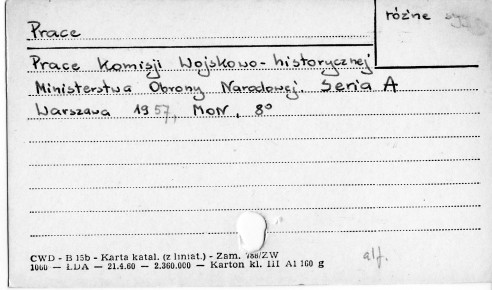 różne
Prace
Prace Komisji Wojskowo-historycznej
Ministerstwa Obrony Narodowej. Seria A
Warszawa 1957, MON, 8°
CWD - B 15b - Karta katal. (z liniat.) - Zam. 788/ZW
1000 — ŁDA — 21.4.60 — 2.360.000 — Karton kl. III A1 160 g
alf.